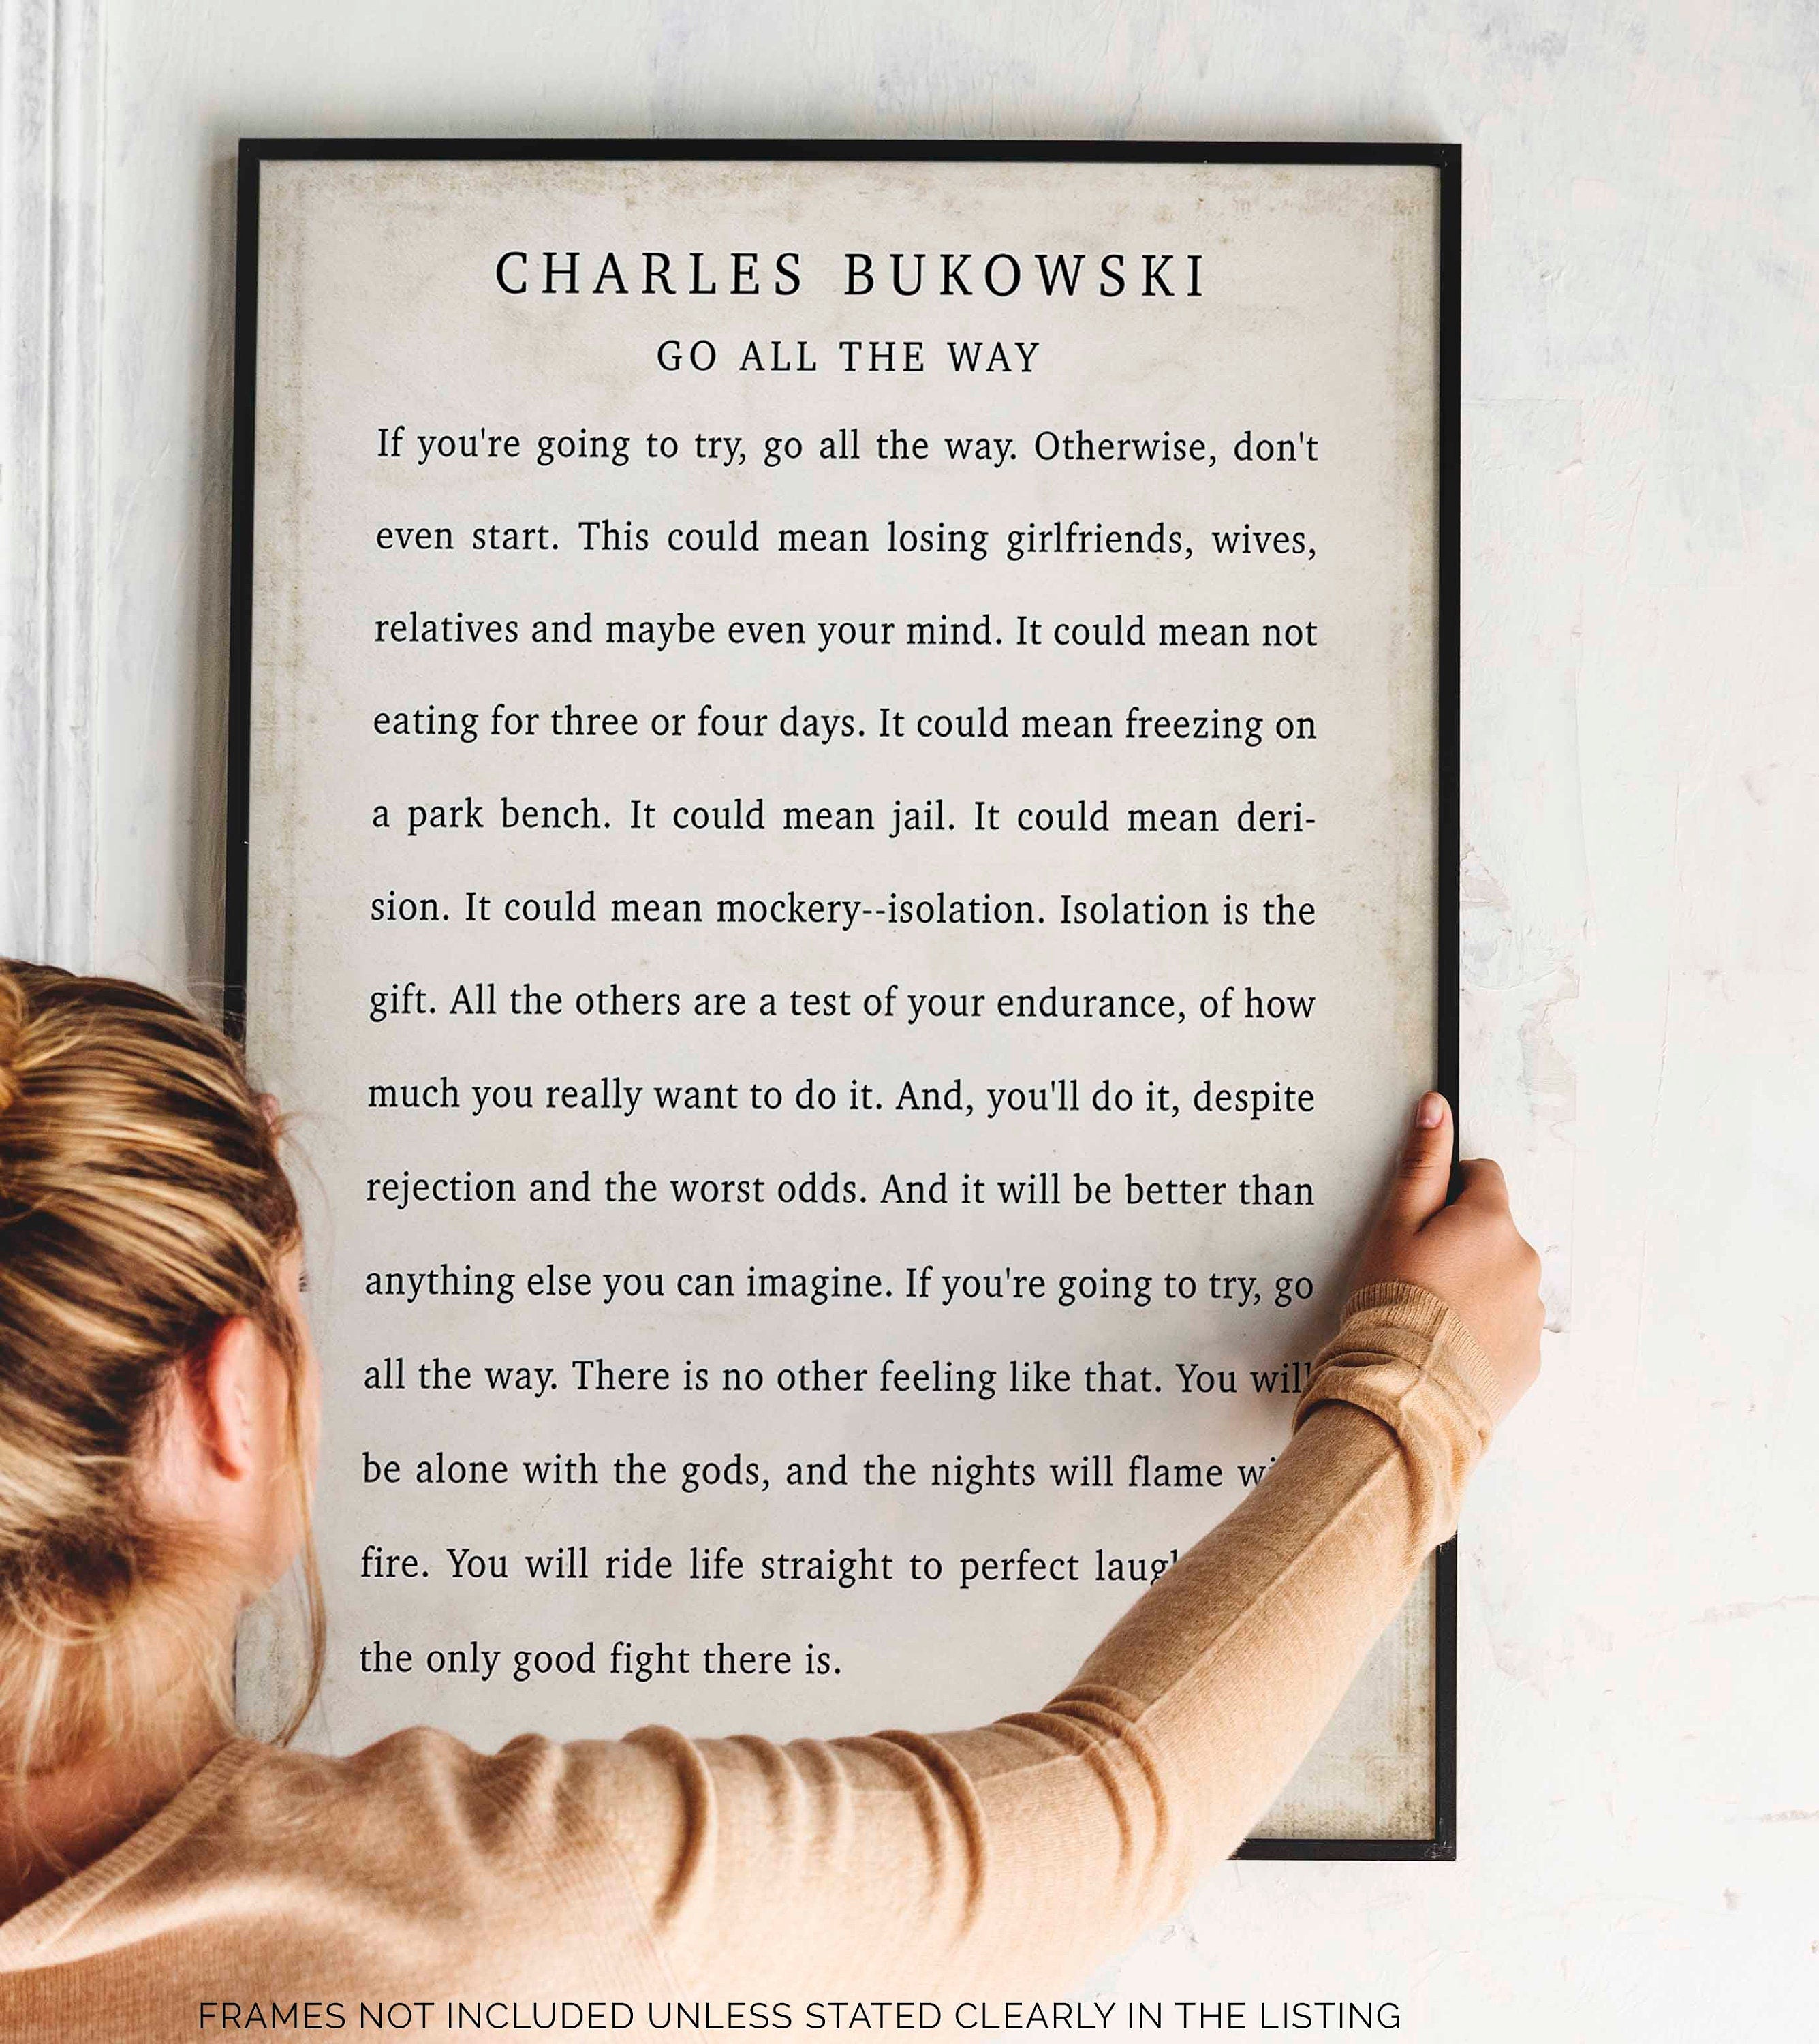 CHARLES BUKOWSKI
GO ALL THE WAY
If you're going to try, go all the way. Otherwise, don't
even start. This could mean losing girlfriends, wives,
relatives and maybe even your mind. It could mean not
eating for three or four days. It could mean freezing on
a park bench. It could mean jail. It could mean deri-
sion. It could mean mockery--isolation. Isolation is the
gift. All the others are a test of your endurance, of how
much you really want to do it. And, you'll do it, despite
rejection and the worst odds. And it will be better than
anything else you can imagine. If you're going to try, go
all the way. There is no other feeling like that. You will
be alone with the gods, and the nights will flame
fire. You will ride life straight to perfect
the only good fight there is.
FRAMES NOT INCLUDED UNLESS STATED CLEARLY IN THE LISTING